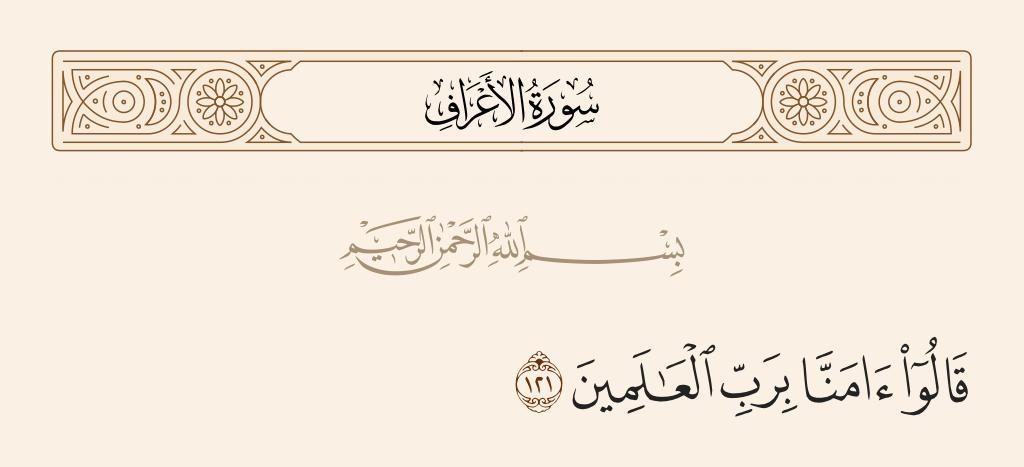 سُورَةُ الأَعْرَافِ
بِسْمِ ٱللَّهِ ٱلرَّحْمَٰنِ ٱلرَّحِيمِ
قَالُوٓا۟ ءَامَنَّا بِرَبِّ ٱلْعَـٰلَمِينَ ١٢١